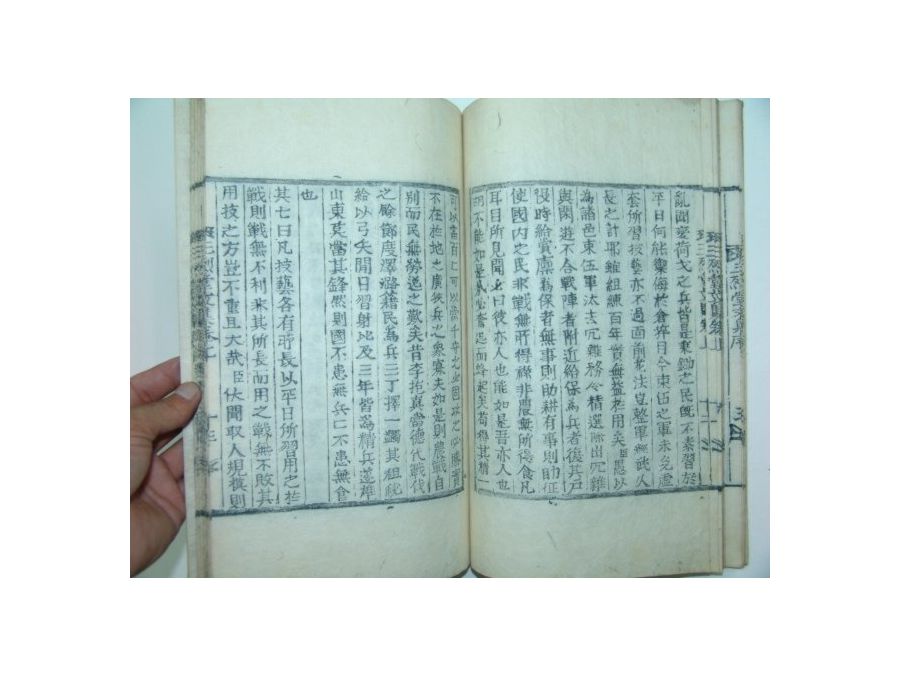 亂聞変荷戈之兵皆是秉鋤之民旣不素習於
平日何能禦侮於倉卒日今束伍之軍未免虛
套所習技藝亦不過面前花法豈整軍經武久
長之計耶雖組練百年實無益於用矣臣愚以
為諸邑束伍軍汰去冗雜務令精選除出冗雜
與閑遊不合戰陣者附近給保為兵者復其戶
役時給賞廪為保者無事則助耕有事則助征
使國内之民非戰無所得祿非農無所得食凡
耳目所見聞必曰彼亦人也能如是吾亦人也
不能如是 奮 而蜂起矣苟得其精一
可以當百 可以當千 以固攻 勝實
不在於地之廣狹兵之衆寡夫如是則農戰自
別而民無勞逸之歎矣昔李抱真當德代戰伐
之餘節度澤潞籍民為兵三丁擇一蠲其租税
給以弓矢閒日習射比及三年皆為精兵遂雄
山東莫當其鋒然則國不患無兵亡不患無食
也
其七曰凡技藝各有所長以平日所習用之於
戰則戰無不利来其所長而用之戰無不敗其
用技之方豈不重且大哉臣伏聞取人規模則